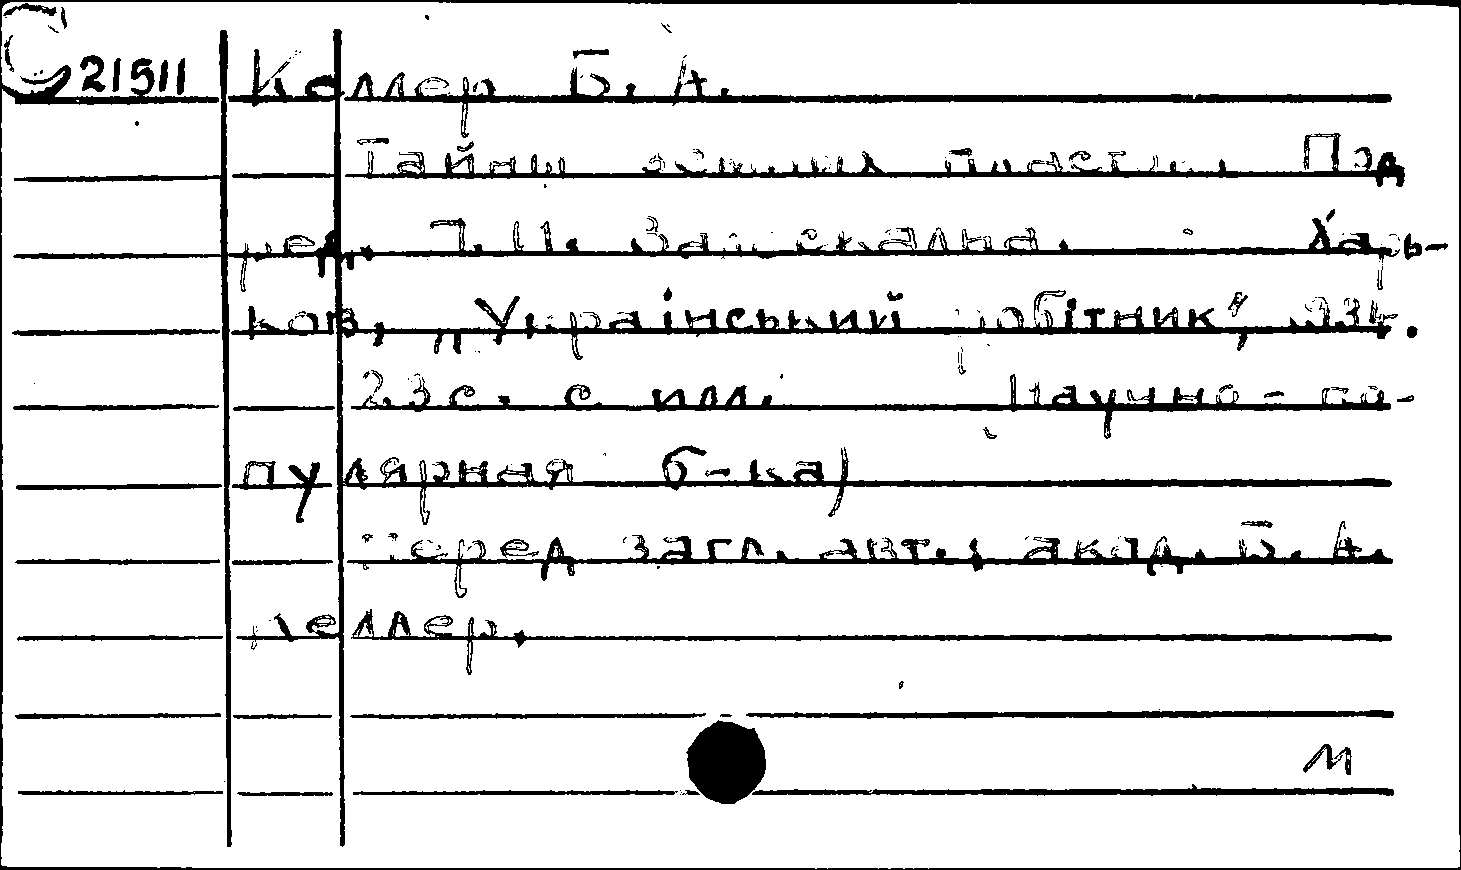 С 21511 Келлер Б. А.
Тайны земных пластов. Под
ред. П. И. Харь-
ков, „Український робітник“, 1934.
23 с. с илл. Научно-по-
пулярная б-ка)
Перед загл. авт.: акад. Б. А.
Келлер.
м